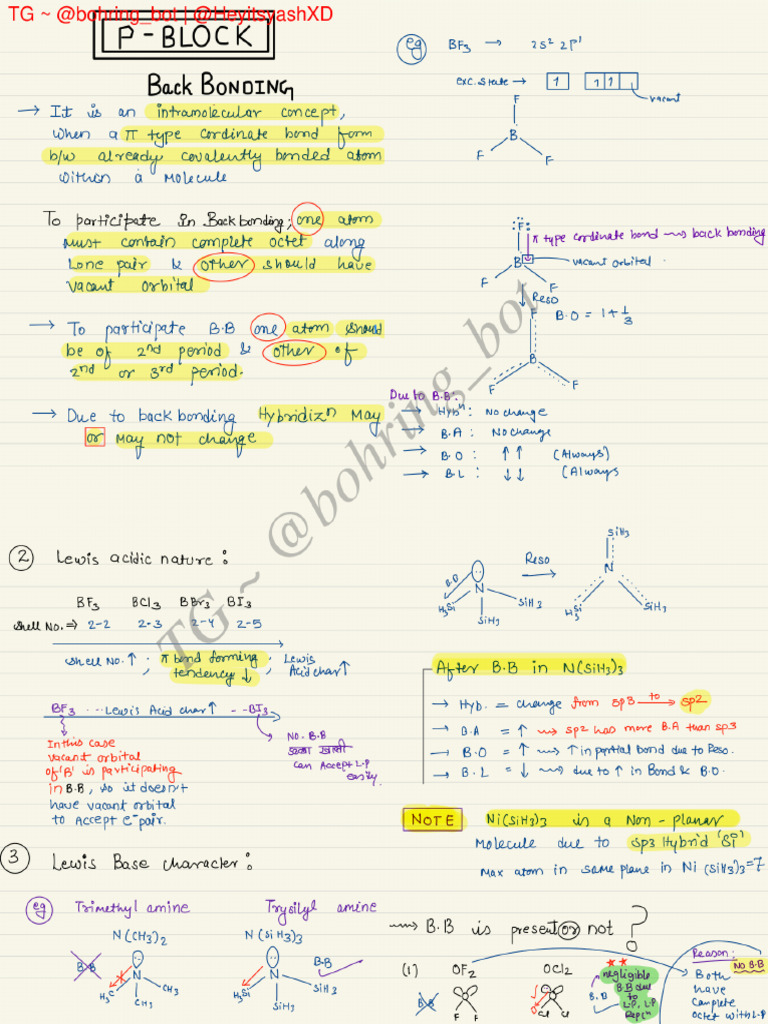 TG ~ @bohring_bot | @HeyitsyashXD
P-BLOCK
Back BONDING
→ It is an intramolecular concept,
when a π type cordinate bond form
b/w already covalently bonded atom
within a Molecule
To participate in Backbonding; one atom
must contain complete octet along
Lone pair & other should have
vacant orbital
→ To participate B.B one atom should
be of 2nd period & other of
2nd or 3rd period.
→ Due to back bonding Hybridizn May
or may not change
eg BF3 → 2s2 2p1
exc. state → 1 1 1
vacant
F
B
F F
:F:
π type cordinate bond ~~> back bonding
B vacant orbital
F F
Reso
F
B.O = 1 + 1/3
B
F F
Due to B.B:
→ Hybn : No change
→ B.A : No change
→ B.O : ↑ ↑ (Always)
→ B.L : ↓ ↓ (Always
TG ~ @bohring_bot
② Lewis acidic nature :
BF3 BCl3 BBr3 BI3
Shell No. ⇒ 2-2 2-3 2-4 2-5
Shell No. ↑ ; π bond forming tendency ↓ ; Lewis Acid char ↑
BF3 ... Lewis Acid char ↑ - - BI3
In this case
vacant orbital
of 'B' is participating
in B.B, so it doesn't
have vacant orbital
to Accept e- pair.
No. B.B
can Accept L.P
easily.
B.D
N
H3Si SiH3
SiH3
Reso
SiH3
N
H3Si SiH3
After B.B in N(SiH3)3
→ Hyb. = change from sp3 to → sp2
→ B.A = ↑ ~~> sp2 has more B.A than sp3
→ B.O = ↑ ~~> ↑ in partial bond due to Reso.
→ B.L = ↓ ~~> due to ↑ in Bond & B.O.
NOTE Ni(SiH3)3 is a Non-planar
Molecule due to sp3 Hybrid 'Si'
Max atom in same plane in Ni (SiH3)3 = 7
③ Lewis Base character :
eg Trimethyl amine Trysilyl amine
N(CH3)2 N(SiH3)3
B.B
N
H3C CH3
CH3
B.B
N
H3Si SiH3
SiH3
~~> B.B is present or not ?
(1) OF2 OCl2
B.B
O
F F
O
Cl Cl
B.B
negligible
B.B due
to
L.P, L.P
Repln
Reason:
No B.B
Both
have
complete
octet with L.P